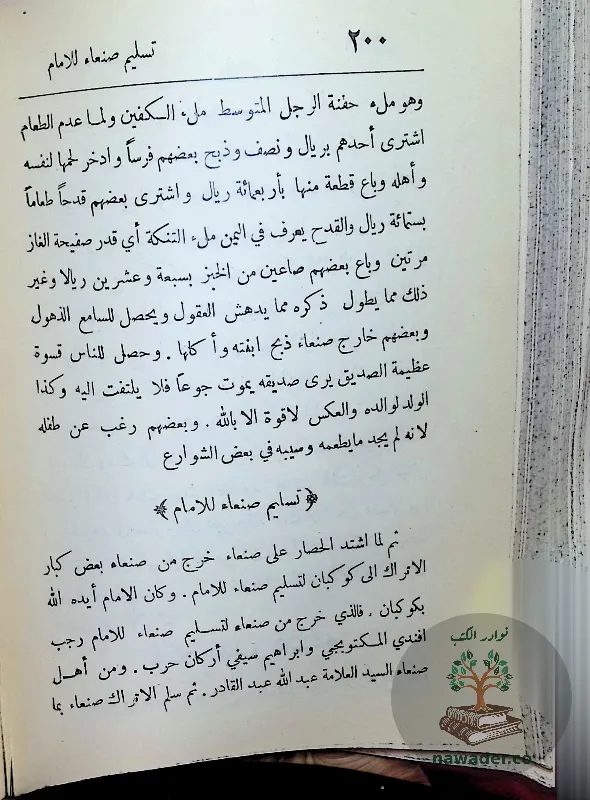 ٢٠٠
تسليم صنعاء للامام
وهو ملء حفنة الرجل المتوسط ملء الكفين ولما عدم الطعام
اشترى أحدهم بريال ونصف وذبح بعضهم فرساً وادخر لحمها لنفسه
وأهله وباع قطعة منها بأربعمائة ريال واشترى بعضهم قدحاً طعاماً
بستمائة ريال والقدح يعرف في اليمن ملء التنكة أي قدر صفيحة الغاز
مرتين وباع بعضهم صاعين من الخبز بسبعة وعشرين ريالا وغير
ذلك مما يطول ذكره مما يدهش العقول ويحصل للسامع الذهول
وبعضهم خارج صنعاء ذبح ابنته وأكلها . وحصل للناس قسوة
عظيمة الصديق يرى صديقه يموت جوعاً فلا يلتفت اليه وكذا
الولد لوالده والعكس لاقوة الا بالله . وبعضهم رغب عن طفله
لانه لم يجد مايطعمه وسيبه في بعض الشوارع
﴿ تسليم صنعاء للامام ﴾
ثم لما اشتد الحصار على صنعاء خرج من صنعاء بعض كبار
الاتراك الى كوكبان لتسليم صنعاء للامام . وكان الامام أيده الله
بكوكبان . فالذي خرج من صنعاء لتسليم صنعاء للامام رجب
افندي المكتوبجي وابراهيم سيفي أركان حرب . ومن أهل
صنعاء السيد العلامة عبد الله عبد القادر . ثم سلم الاتراك صنعاء بما
نوادر الكتب
nawader.co